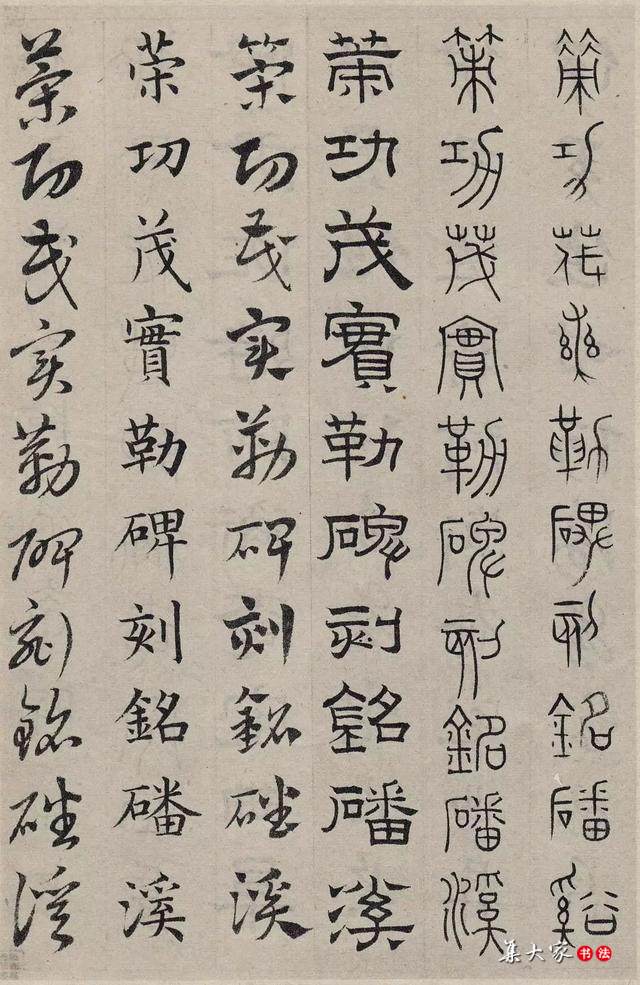 策功茂實勒碑刻銘磻谿
策功茂實勒碑刻銘磻溪
策功茂實勒碑刻銘磻溪
策功茂实勒碑刻銘磻溪
策功茂實勒碑刻銘磻溪
策功茂实勒碑刻銘磻溪
集大家书法